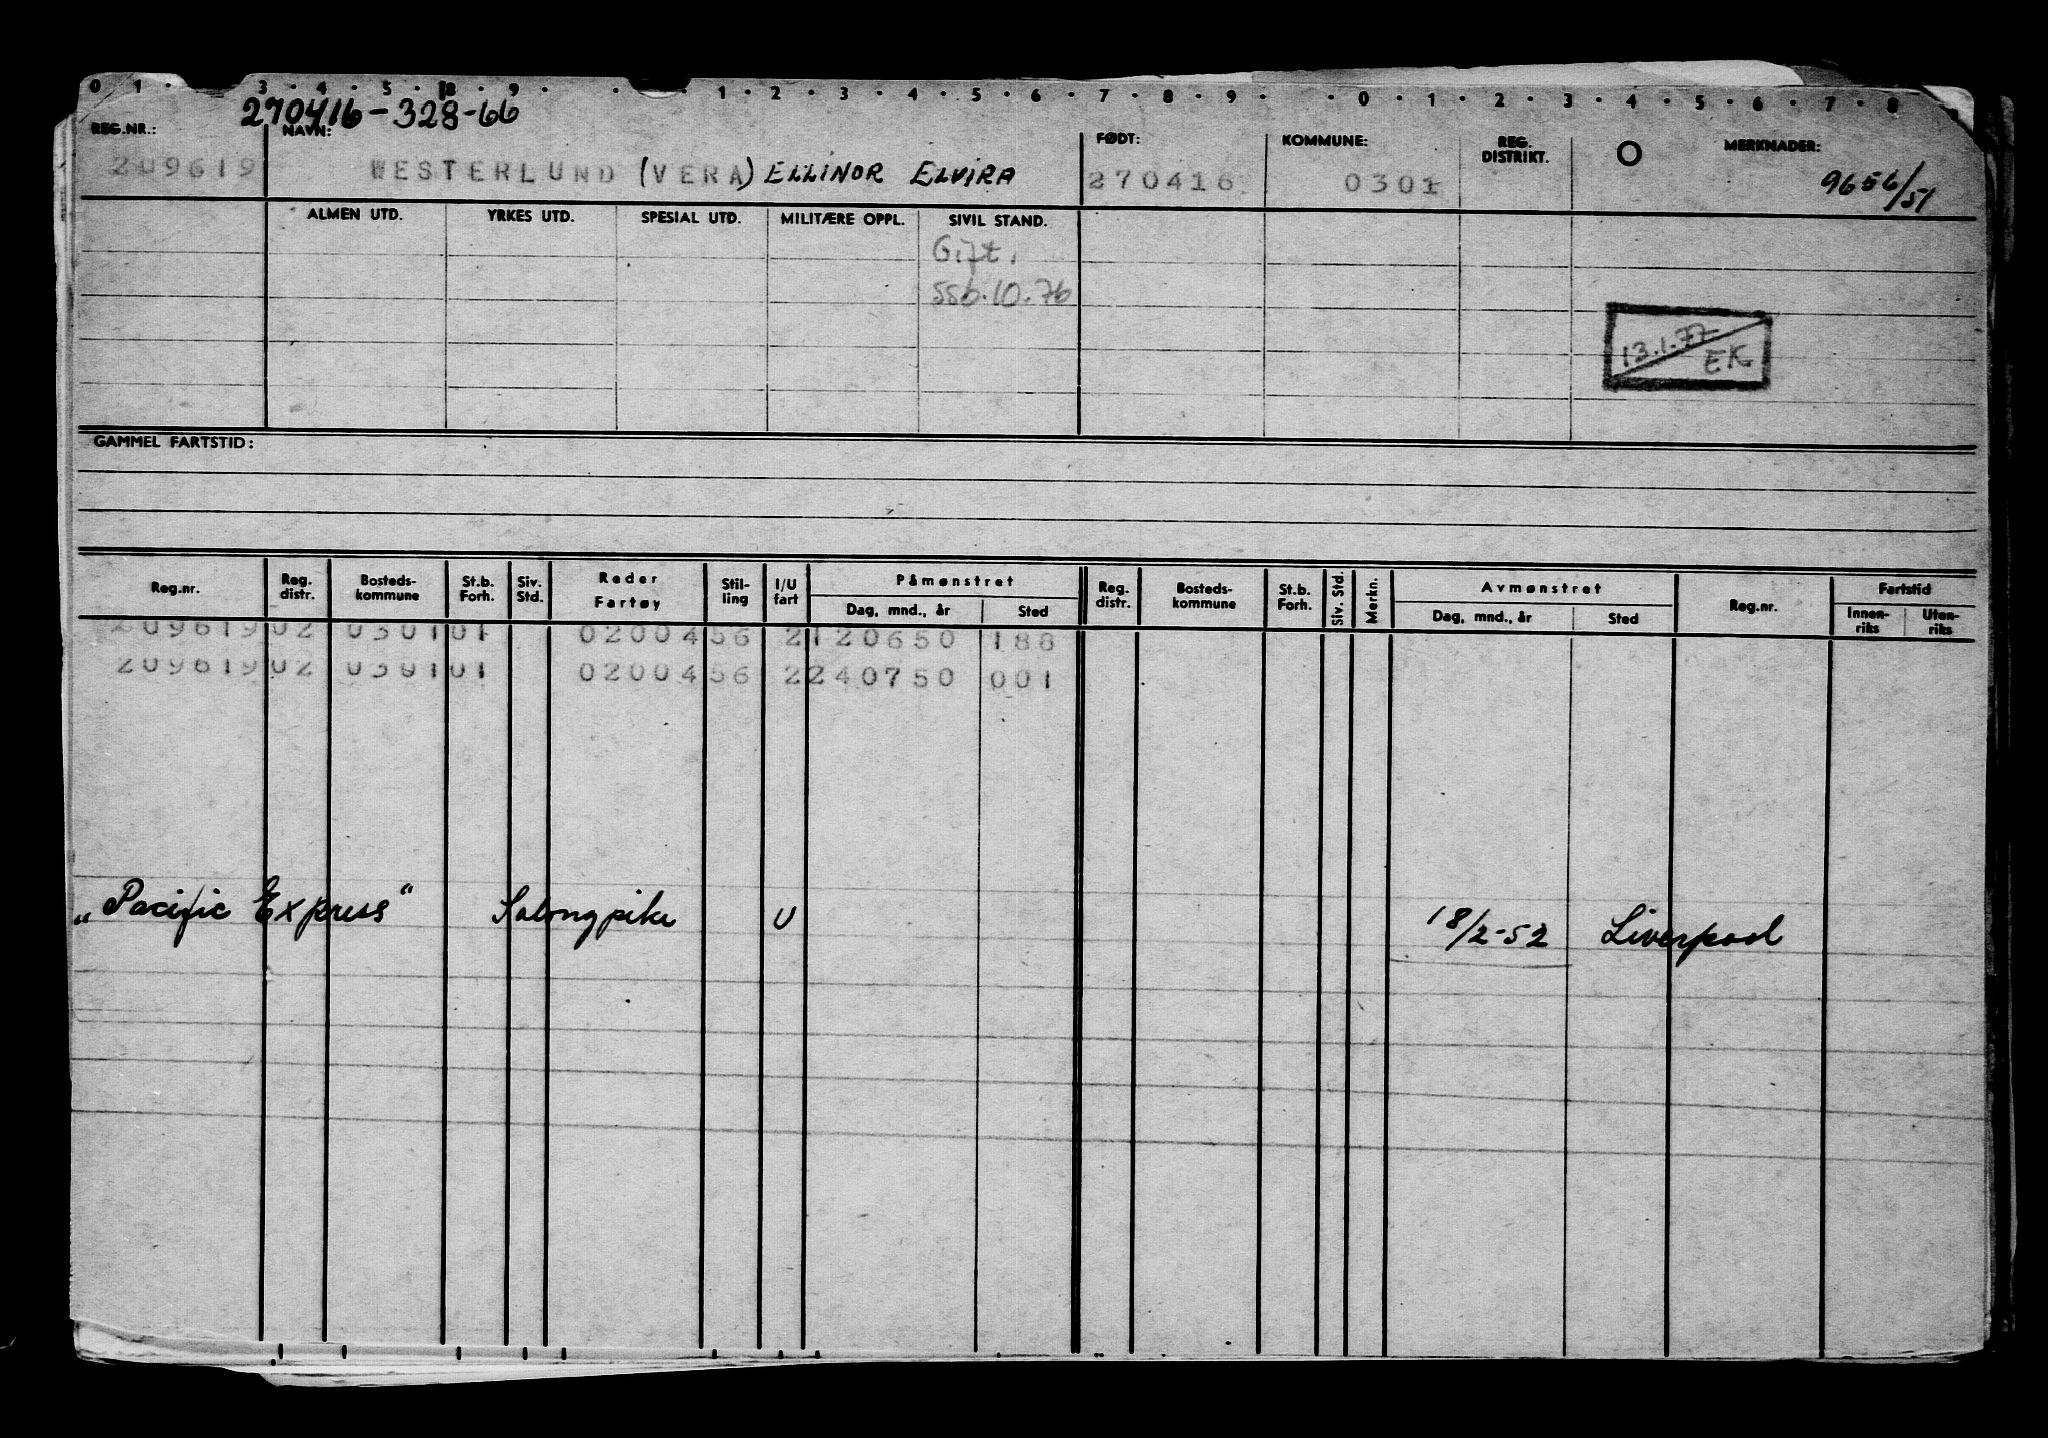 0 1 . . 3 . 4 . 5 . 8 . 9 . . . 1 . 2 . 3 . 4 . 5 . 6 . 7 . 8 . 9 . . 0 . 1 . 2 . 3 . 4 . 5 . 6 . 7 . 8
270416-328-66
REG.NR.: NAVN: FØDT: KOMMUNE: REG. DISTRIKT. O MERKNADER:
209619 WESTERLUND (VERA) ELLINOR ELVIRA 270416 0301 9656/51
ALMEN UTD. YRKES UTD. SPESIAL UTD. MILITÆRE OPPL. SIVIL STAND.
Gift.
SSB.10.76
13.1.77 EK
GAMMEL FARTSTID:
Reg.nr. Reg. distr. Bosteds-kommune St.b. Forh. Siv. Std. Reder Fartøy Stil-ling I/U fart Påmønstret Reg. distr. Bosteds-kommune St.b. Forh. Siv. Std. Merkn. Avmønstret Reg.nr. Fartstid
Dag, mnd., år Sted Dag, mnd., år Sted Innen-riks Uten-riks
209619 02 0301 01 02004 56 2 120650 188
209619 02 0301 01 02004 56 2 240750 001
"Pacific Express" Salongpike U 18/2-52 Liverpool